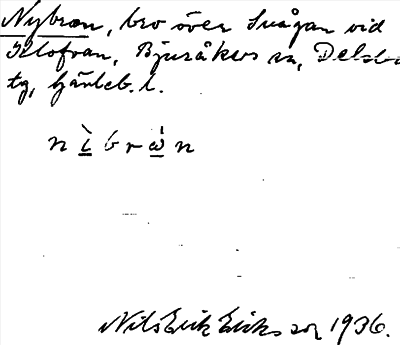 Nybron, bro över Svågan vid
Klofvan, Bjuråkers sn, Delsbo
tg, Gävleb. l.
n ì b r ὼ n
Nils Erik Eriksson 1936.